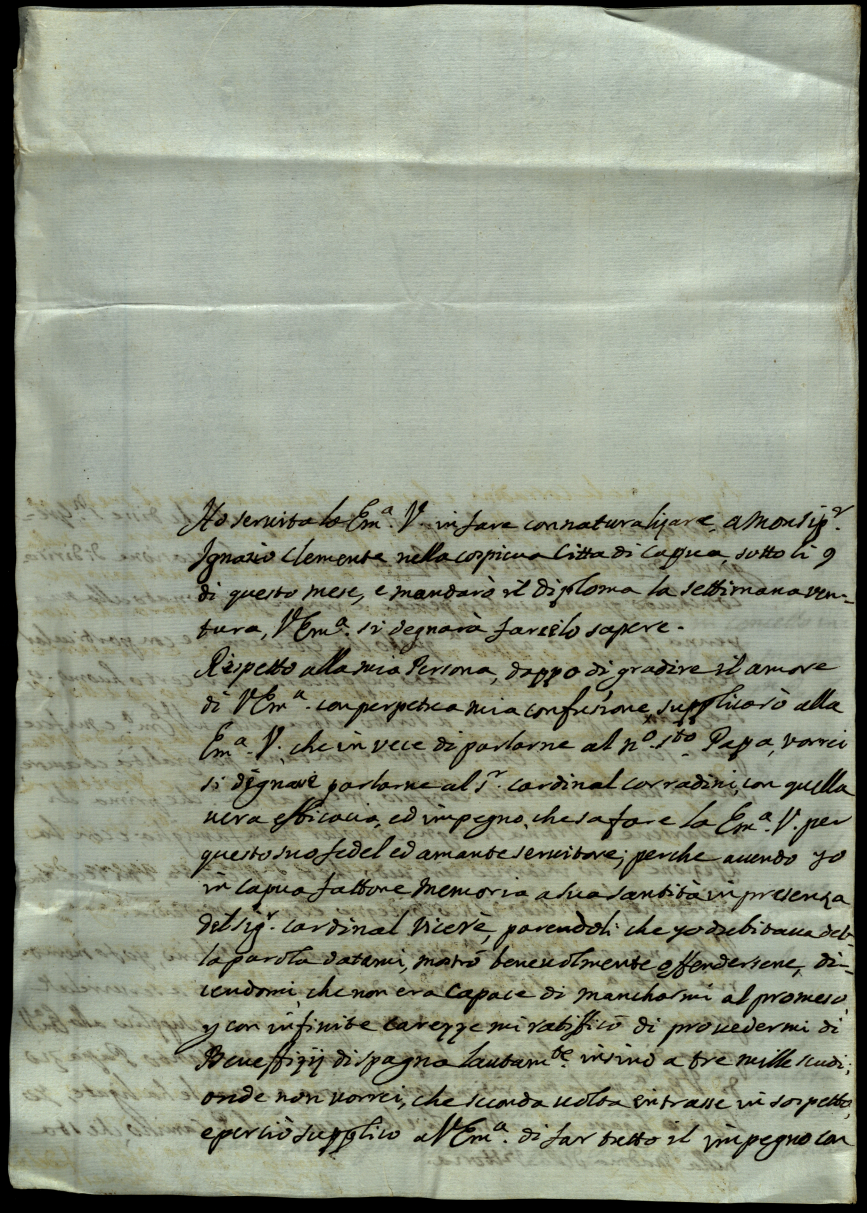 Ho seruito la Em.ª V. in fare connaturalizare, a Monsig.r
Ignazio Clemente nella cospicua Citta di Capua, sotto li 9
di questo mese, e mandarò il diploma la settimana ven-
tura, V Em.ª si degnarà farcelo sapere.
Rispetto alla mia Persona, doppo di gradire il amore
di V Em.ª con perpetua mia confusione supplicarò alla
Em.ª V. che in vece di parlarne al n.º s.to Papa, vorrei
si degnare parlarne al S.r Cardinal Corradini, con quella
vera efficacia, ed impegno, che sa fare la Em.ª V. per
questo suo fedel ed amante seruitore; perche auendo yo
in Capua fattone memoria a sua santità in presenza
del Sig.r Cardinal Vicerè, parendoli che yo dubitaua del-
la parola datami, mostrò beneuolmente offendersene, di-
cendomi, che non era capace di mancharmi al promeso,
y con infinite carezze mi ratifficò di prouedermi di
Beneffizij di spagna lautam.te insino a tre mille scudi;
onde non vorrei, che seconda uolta entrasse in sospetto,
e perciò supplico a V Em.ª di far tutto il impegno con